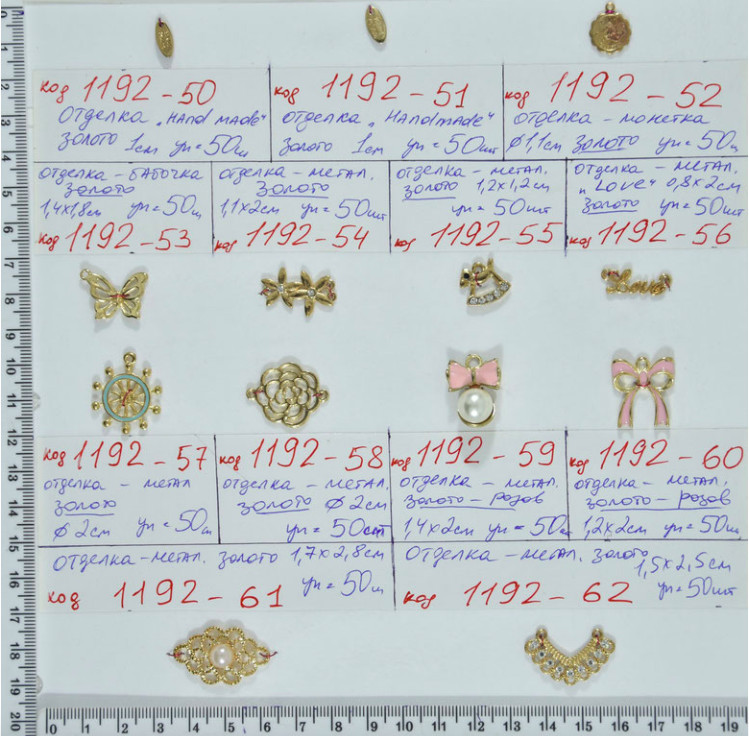 код 1192-50
отделка "Hand made"
золото 1см уп=50ш
код 1192-51
отделка "Handmade"
золото 1см уп=50шт
код 1192-52
отделка - монетка
Ø1,1см золото уп=50ш
отделка - бабочка
золото
1,4х1,8см уп=50ш
код 1192-53
отделка - метал.
золото
1,1х2см уп=50шт
код 1192-54
отделка - метал.
золото 1,2х1,2см
уп=50шт
код 1192-55
отделка - метал.
"Love" 0,8х2см
золото уп=50шт
код 1192-56
Love
код 1192-57
отделка - метал
золото
Ø 2см уп=50ш
код 1192-58
отделка - метал.
золото Ø 2см
уп=50шт
код 1192-59
отделка - метал.
золото - розов
1,4х2см уп=50ш
код 1192-60
отделка - метал.
золото - розов
1,2х2см уп=50ш
отделка - метал. золото 1,7х2,8см
уп=50ш
код 1192-61
отделка - метал. золото
1,5х2,5см
уп=50шт
код 1192-62
0 1 2 3 4 5 6 7 8 9 10 11 12 13 14 15 16 17 18 19 20
0 1 2 3 4 5 6 7 8 9 10 11 12 13 14 15 16 17 18 19